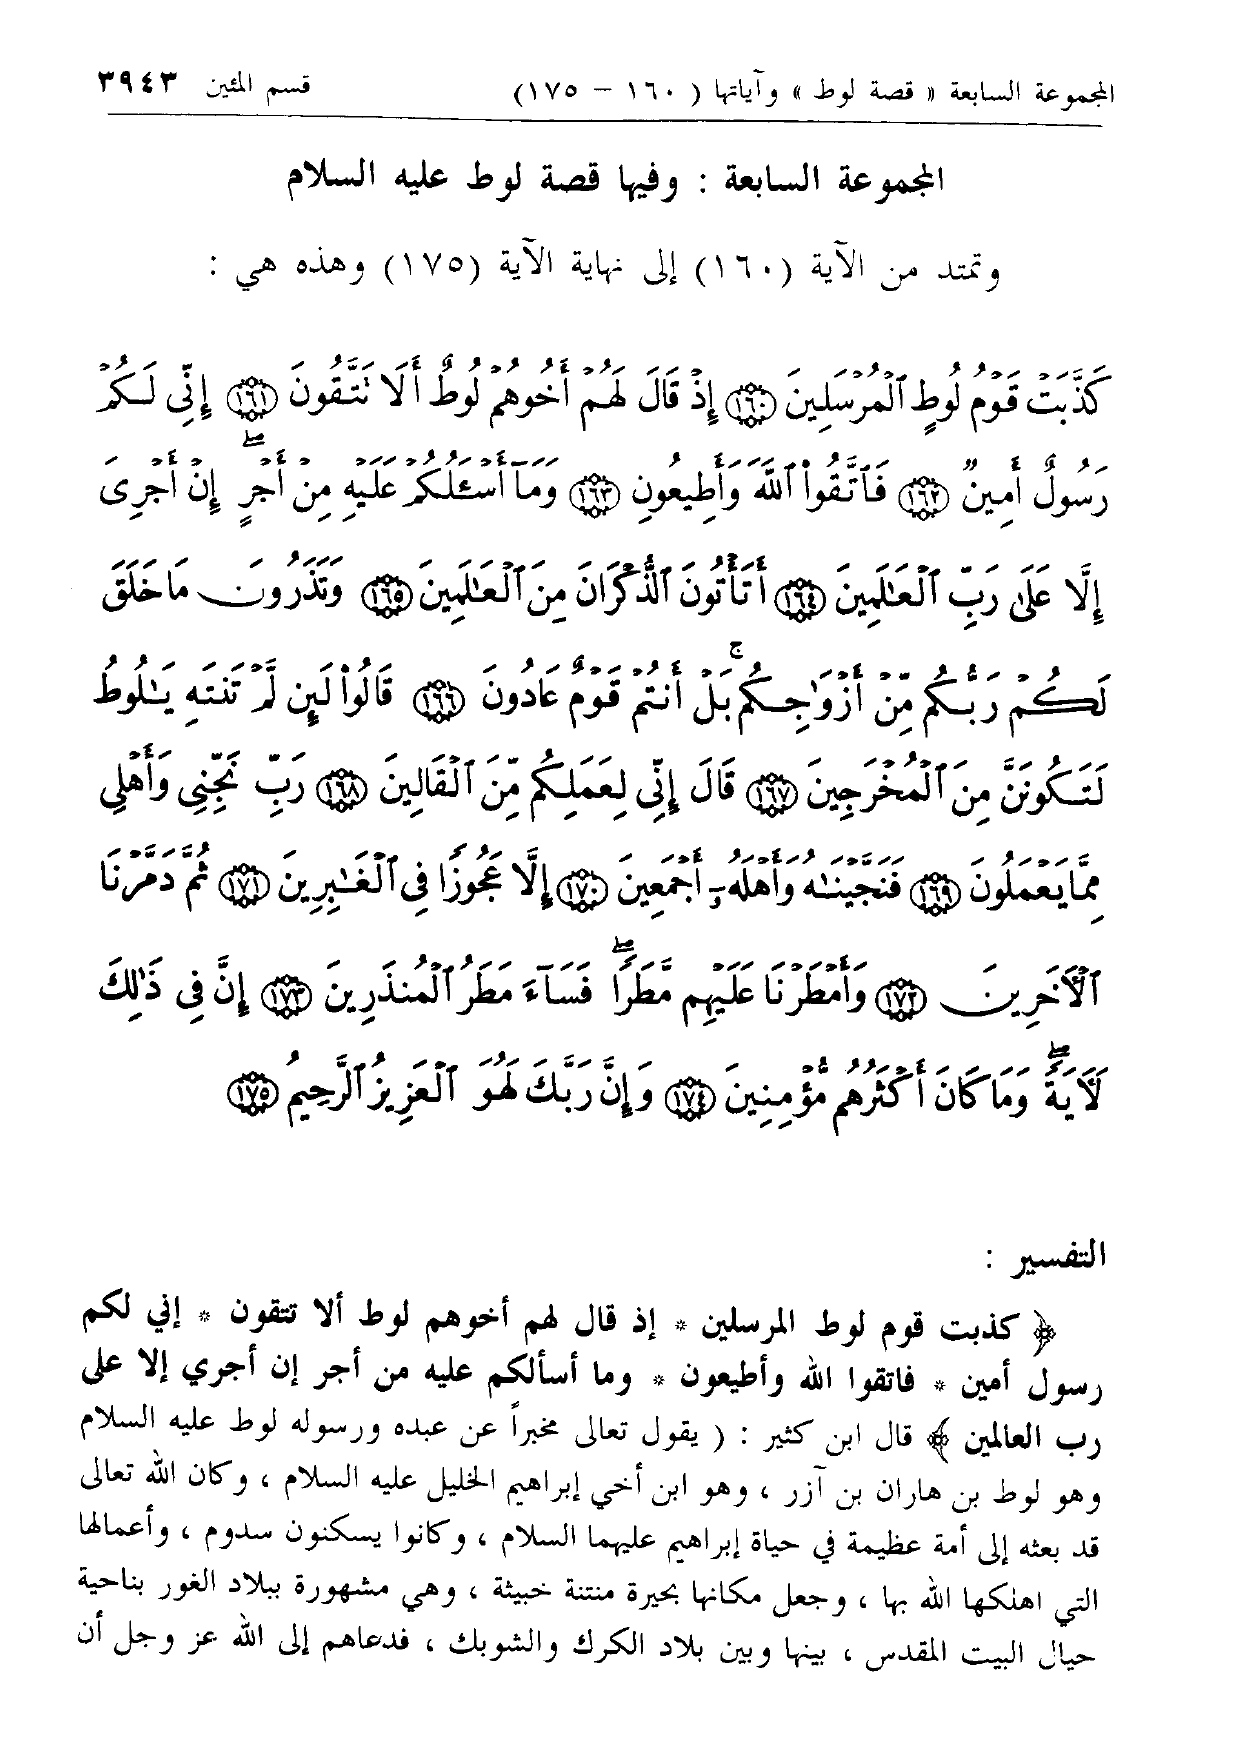 المجموعة السابعة « قصة لوط » وآياتها ( ١٦٠ – ١٧٥) قسم المئين ٣٩٤٣
المجموعة السابعة : وفيها قصة لوط عليه السلام
وتمتد من الآية (١٦٠) إلى نهاية الآية (١٧٥) وهذه هي :
كَذَّبَتْ قَوْمُ لُوطٍ ٱلْمُرْسَلِينَ ١٦٠ إِذْ قَالَ لَهُمْ أَخُوهُمْ لُوطٌ أَلَا تَتَّقُونَ ١٦١ إِنِّى لَكُمْ
رَسُولٌ أَمِينٌ ١٦٢ فَٱتَّقُوا۟ ٱللَّهَ وَأَطِيعُونِ ١٦٣ وَمَآ أَسْـَٔلُكُمْ عَلَيْهِ مِنْ أَجْرٍ ۖ إِنْ أَجْرِىَ
إِلَّا عَلَىٰ رَبِّ ٱلْعَـٰلَمِينَ ١٦٤ أَتَأْتُونَ ٱلذُّكْرَانَ مِنَ ٱلْعَـٰلَمِينَ ١٦٥ وَتَذَرُونَ مَا خَلَقَ
لَكُمْ رَبُّكُم مِّنْ أَزْوَٰجِكُم ۚ بَلْ أَنتُمْ قَوْمٌ عَادُونَ ١٦٦ قَالُوا۟ لَئِن لَّمْ تَنتَهِ يَـٰلُوطُ
لَتَكُونَنَّ مِنَ ٱلْمُخْرَجِينَ ١٦٧ قَالَ إِنِّى لِعَمَلِكُم مِّنَ ٱلْقَالِينَ ١٦٨ رَبِّ نَجِّنِى وَأَهْلِى
مِمَّا يَعْمَلُونَ ١٦٩ فَنَجَّيْنَـٰهُ وَأَهْلَهُۥٓ أَجْمَعِينَ ١٧٠ إِلَّا عَجُوزًا فِى ٱلْغَـٰبِرِينَ ١٧١ ثُمَّ دَمَّرْنَا
ٱلْـَٔاخَرِينَ ١٧٢ وَأَمْطَرْنَا عَلَيْهِم مَّطَرًا ۖ فَسَآءَ مَطَرُ ٱلْمُنذَرِينَ ١٧٣ إِنَّ فِى ذَٰلِكَ
لَـَٔايَةً ۖ وَمَا كَانَ أَكْثَرُهُم مُّؤْمِنِينَ ١٧٤ وَإِنَّ رَبَّكَ لَهُوَ ٱلْعَزِيزُ ٱلرَّحِيمُ ١٧٥
التفسير :
﴿ كذبت قوم لوط المرسلين * إذ قال لهم أخوهم لوط ألا تتقون * إني لكم
رسول أمين * فاتقوا الله وأطيعون * وما أسألكم عليه من أجر إن أجري إلا على
رب العالمين ﴾ قال ابن كثير : ( يقول تعالى مخبراً عن عبده ورسوله لوط عليه السلام
وهو لوط بن هاران بن آزر ، وهو ابن أخي إبراهيم الخليل عليه السلام ، وكان الله تعالى
قد بعثه إلى أمة عظيمة في حياة إبراهيم عليهما السلام ، وكانوا يسكنون سدوم ، وأعمالها
التي اهلكها الله بها ، وجعل مكانها بحيرة منتنة خبيثة ، وهي مشهورة ببلاد الغور بناحية
حيال البيت المقدس ، بينها وبين بلاد الكرك والشوبك ، فدعاهم إلى الله عز وجل أن